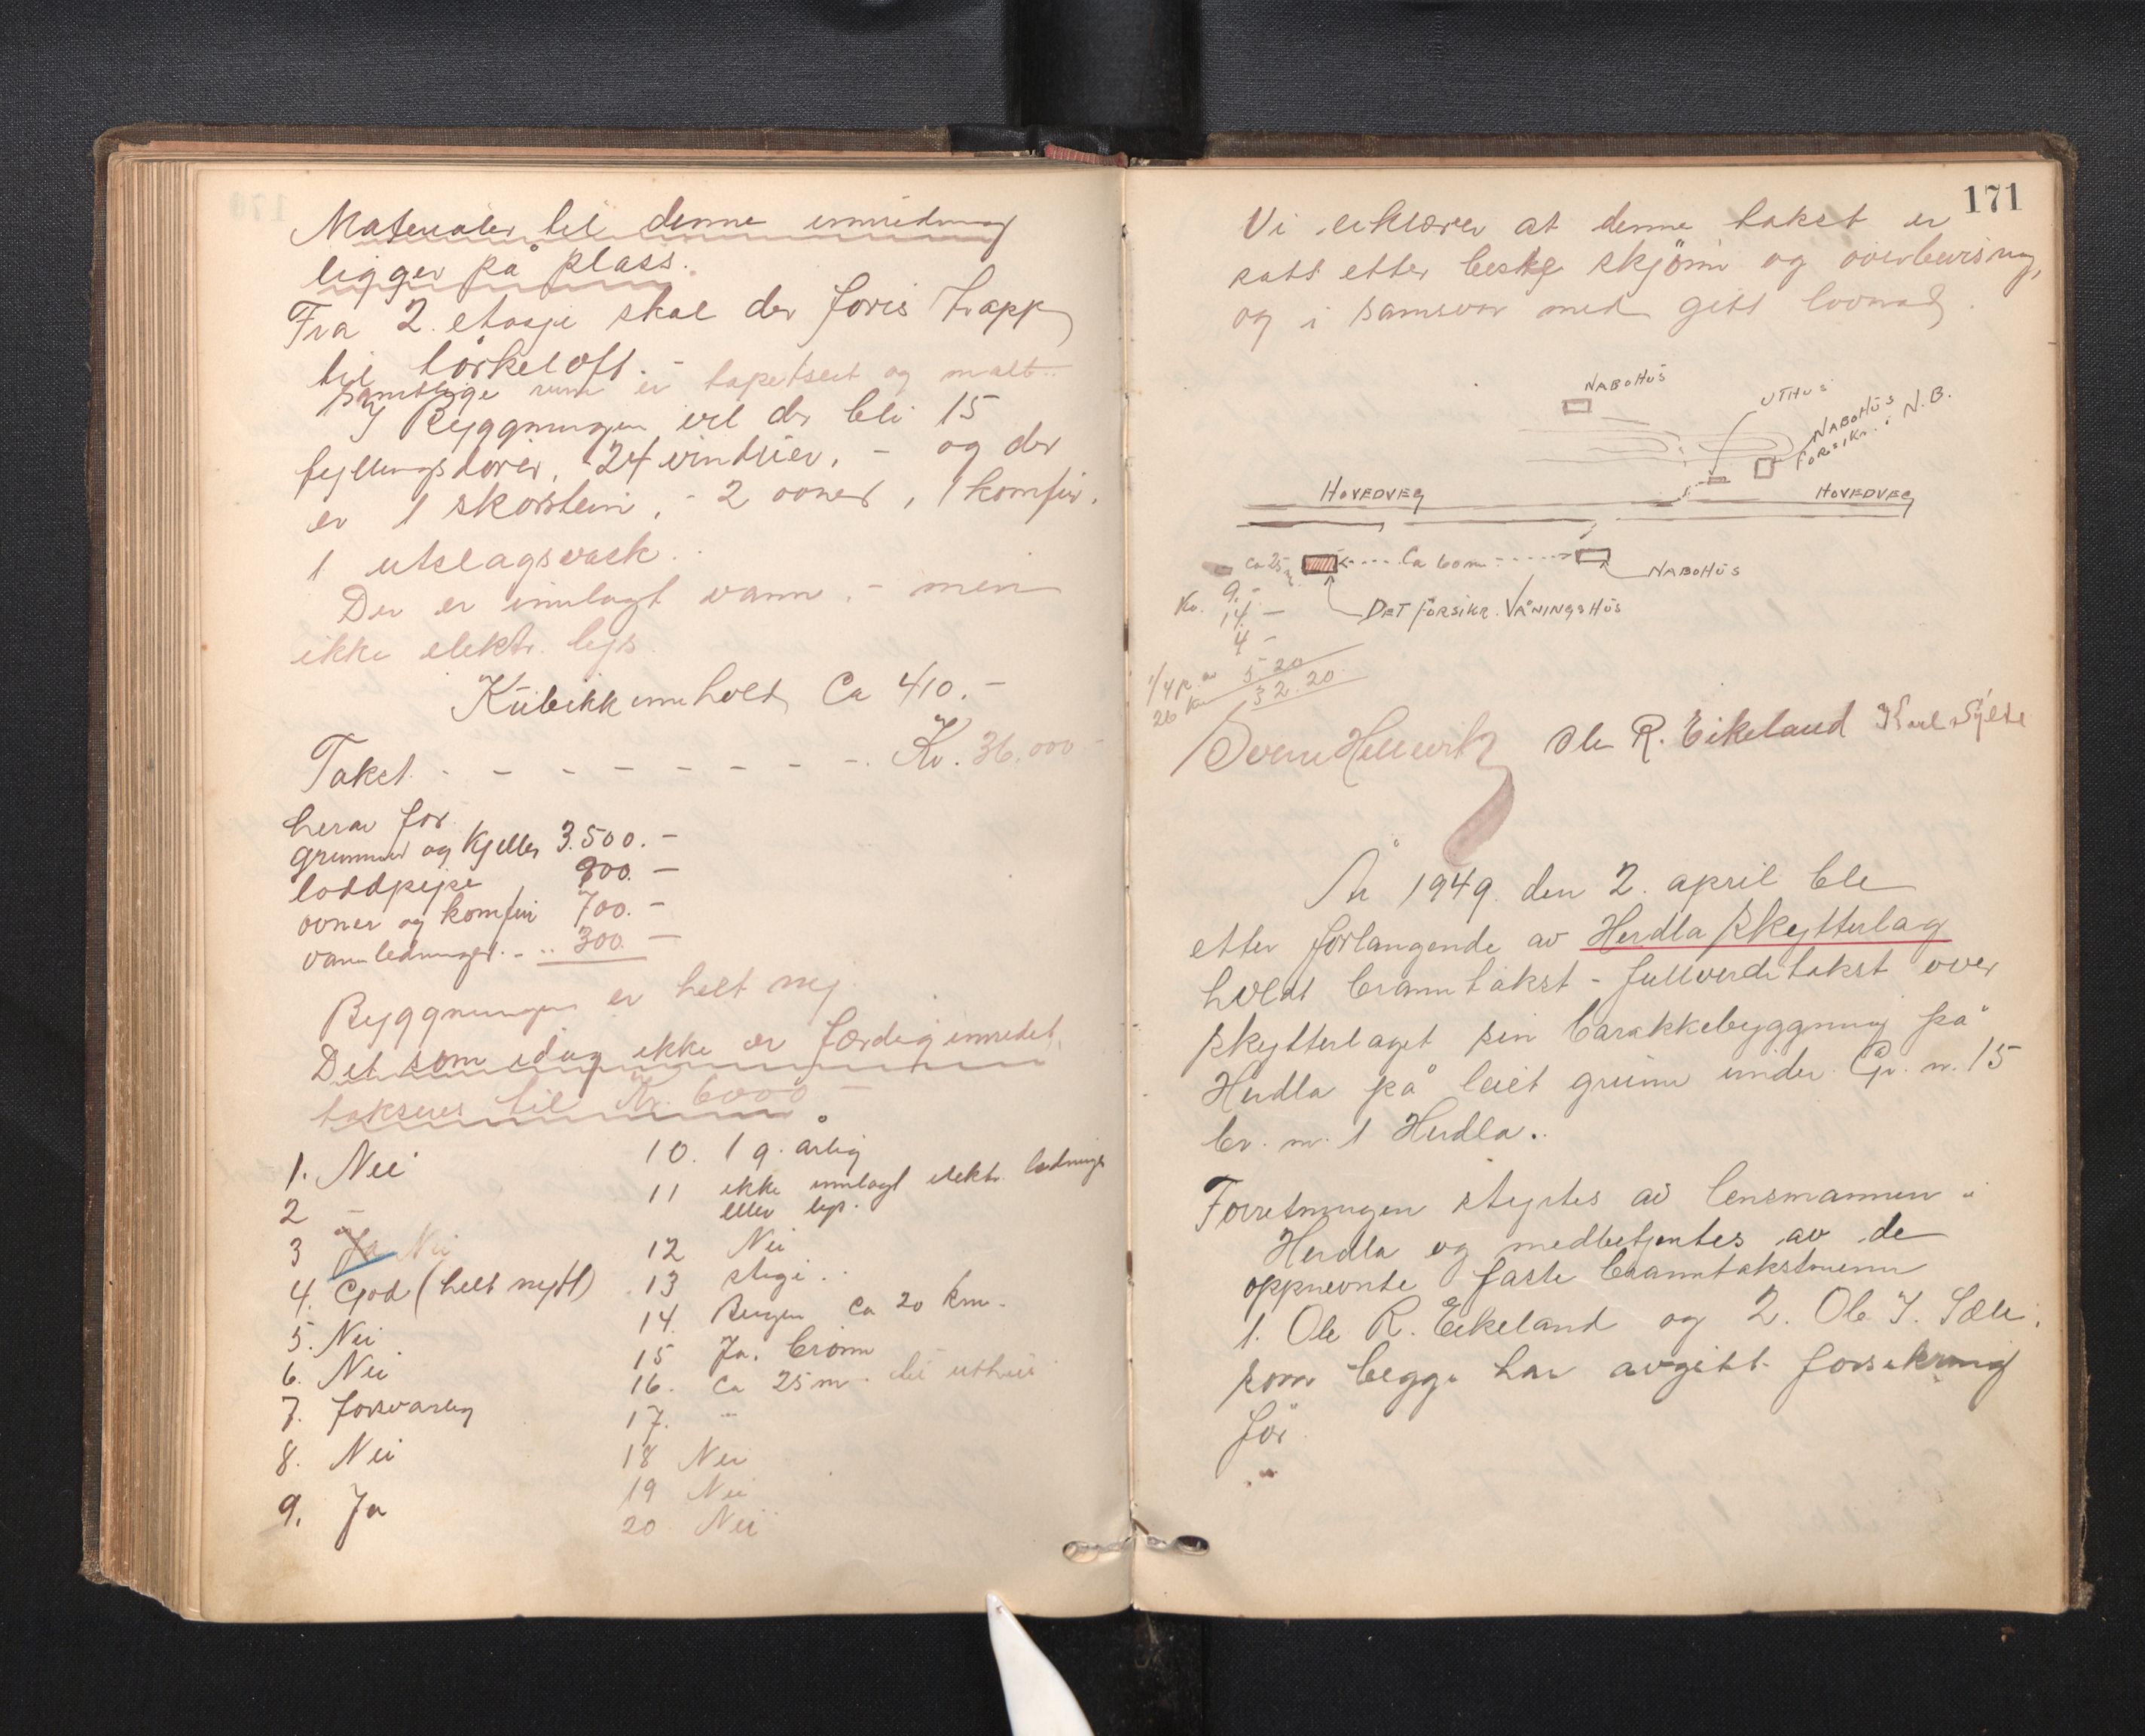 Materialer til denne innredning
ligger på plass.
Fra 2. etasje skal der føres trapp
til törkeloft.
Samtlige rum er tapetsert og malt.
I Byggningen vil der bli 15
fyllingsdører, 24 vinduer, - og der
er 1 skorstein, - 2 ovner, 1 komfur,
1 utslagsvask.
Der er innlagt vann, - men
ikke elektr. lys.
Kubikkinnhold Ca 410.-
Takst - - - - - - - - Kr. 36.000-
herav for
grunnmur og Kjeller 3.500.-
loddpipe 900.-
ovner og komfur 700.-
vannledninger 300.-
Byggningen er helt ny.
Det som idag ikke er færdig innredet,
takseres til Kr. 6000-
1. Nei
2 -
3 Ja Nei
4. God (helt nytt)
5. Nei
6. Nei
7. forsvarlig
8. Nei
9. Ja
10. 1 g. årlig
11 ikke innlagt elektr. ledninger
eller lys.
12 Nei
13 stige
14. Bergen Ca 20 km.
15 Ja. brønn
16. Ca 25 m. til uthus
17. -
18 Nei
19 Nei
20 Nei
171
Vi erklærer at denne takst er
satt etter beste skjönn og overbevisning,
og i samsvar med gitt lovnad.
NABOHUS
UTHUS
NABOHUS
FORSIKR. i N.B.
HOVEDVEG
HOVEDVEG
Ca 25 m
Ca 60 m
NABOHUS
DET FORSIKR. VÅNINGSHUS
Kr. 9.-
14.-
4 -
1/4 p. av
26 Kr 5.20
32.20
Ole R. Eikeland
År 1949 den 2. april ble
etter forlangende av Herdla Skytterlag
holdt branntakst - fullverditakst over
skytterlaget sin barakkebyggning på
Herdla på leiet grunn under Gr. n. 15
br. nr. 1 Herdla.
Forretningen styrtes av lensmannen i
Herdla og medbetjentes av de
oppnevnte faste branntakstmenn
1. Ole R. Eikeland og 2. Ole J. Sæle,
som begge har avgitt forsikring
för